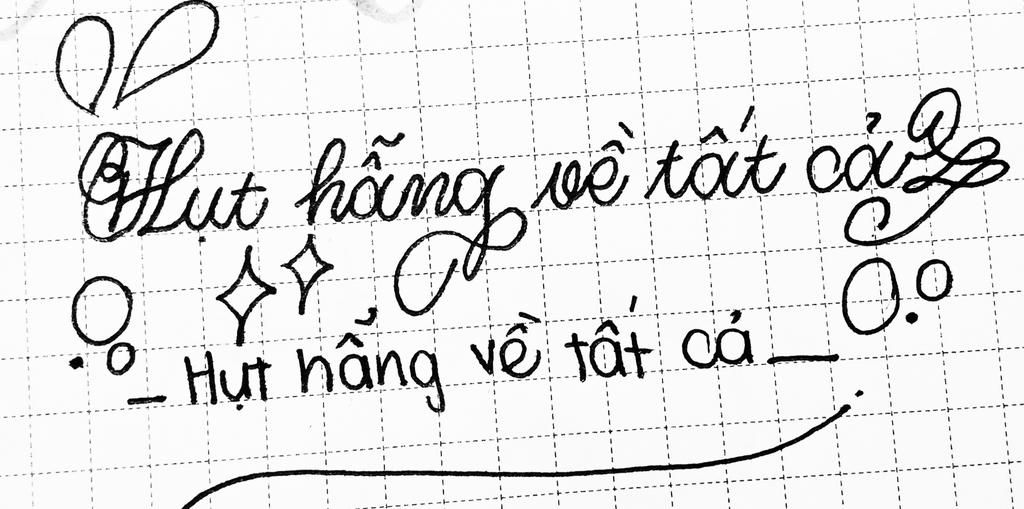 Hụt hẫng về tất cả
_ Hụt hẩng về tất cả _